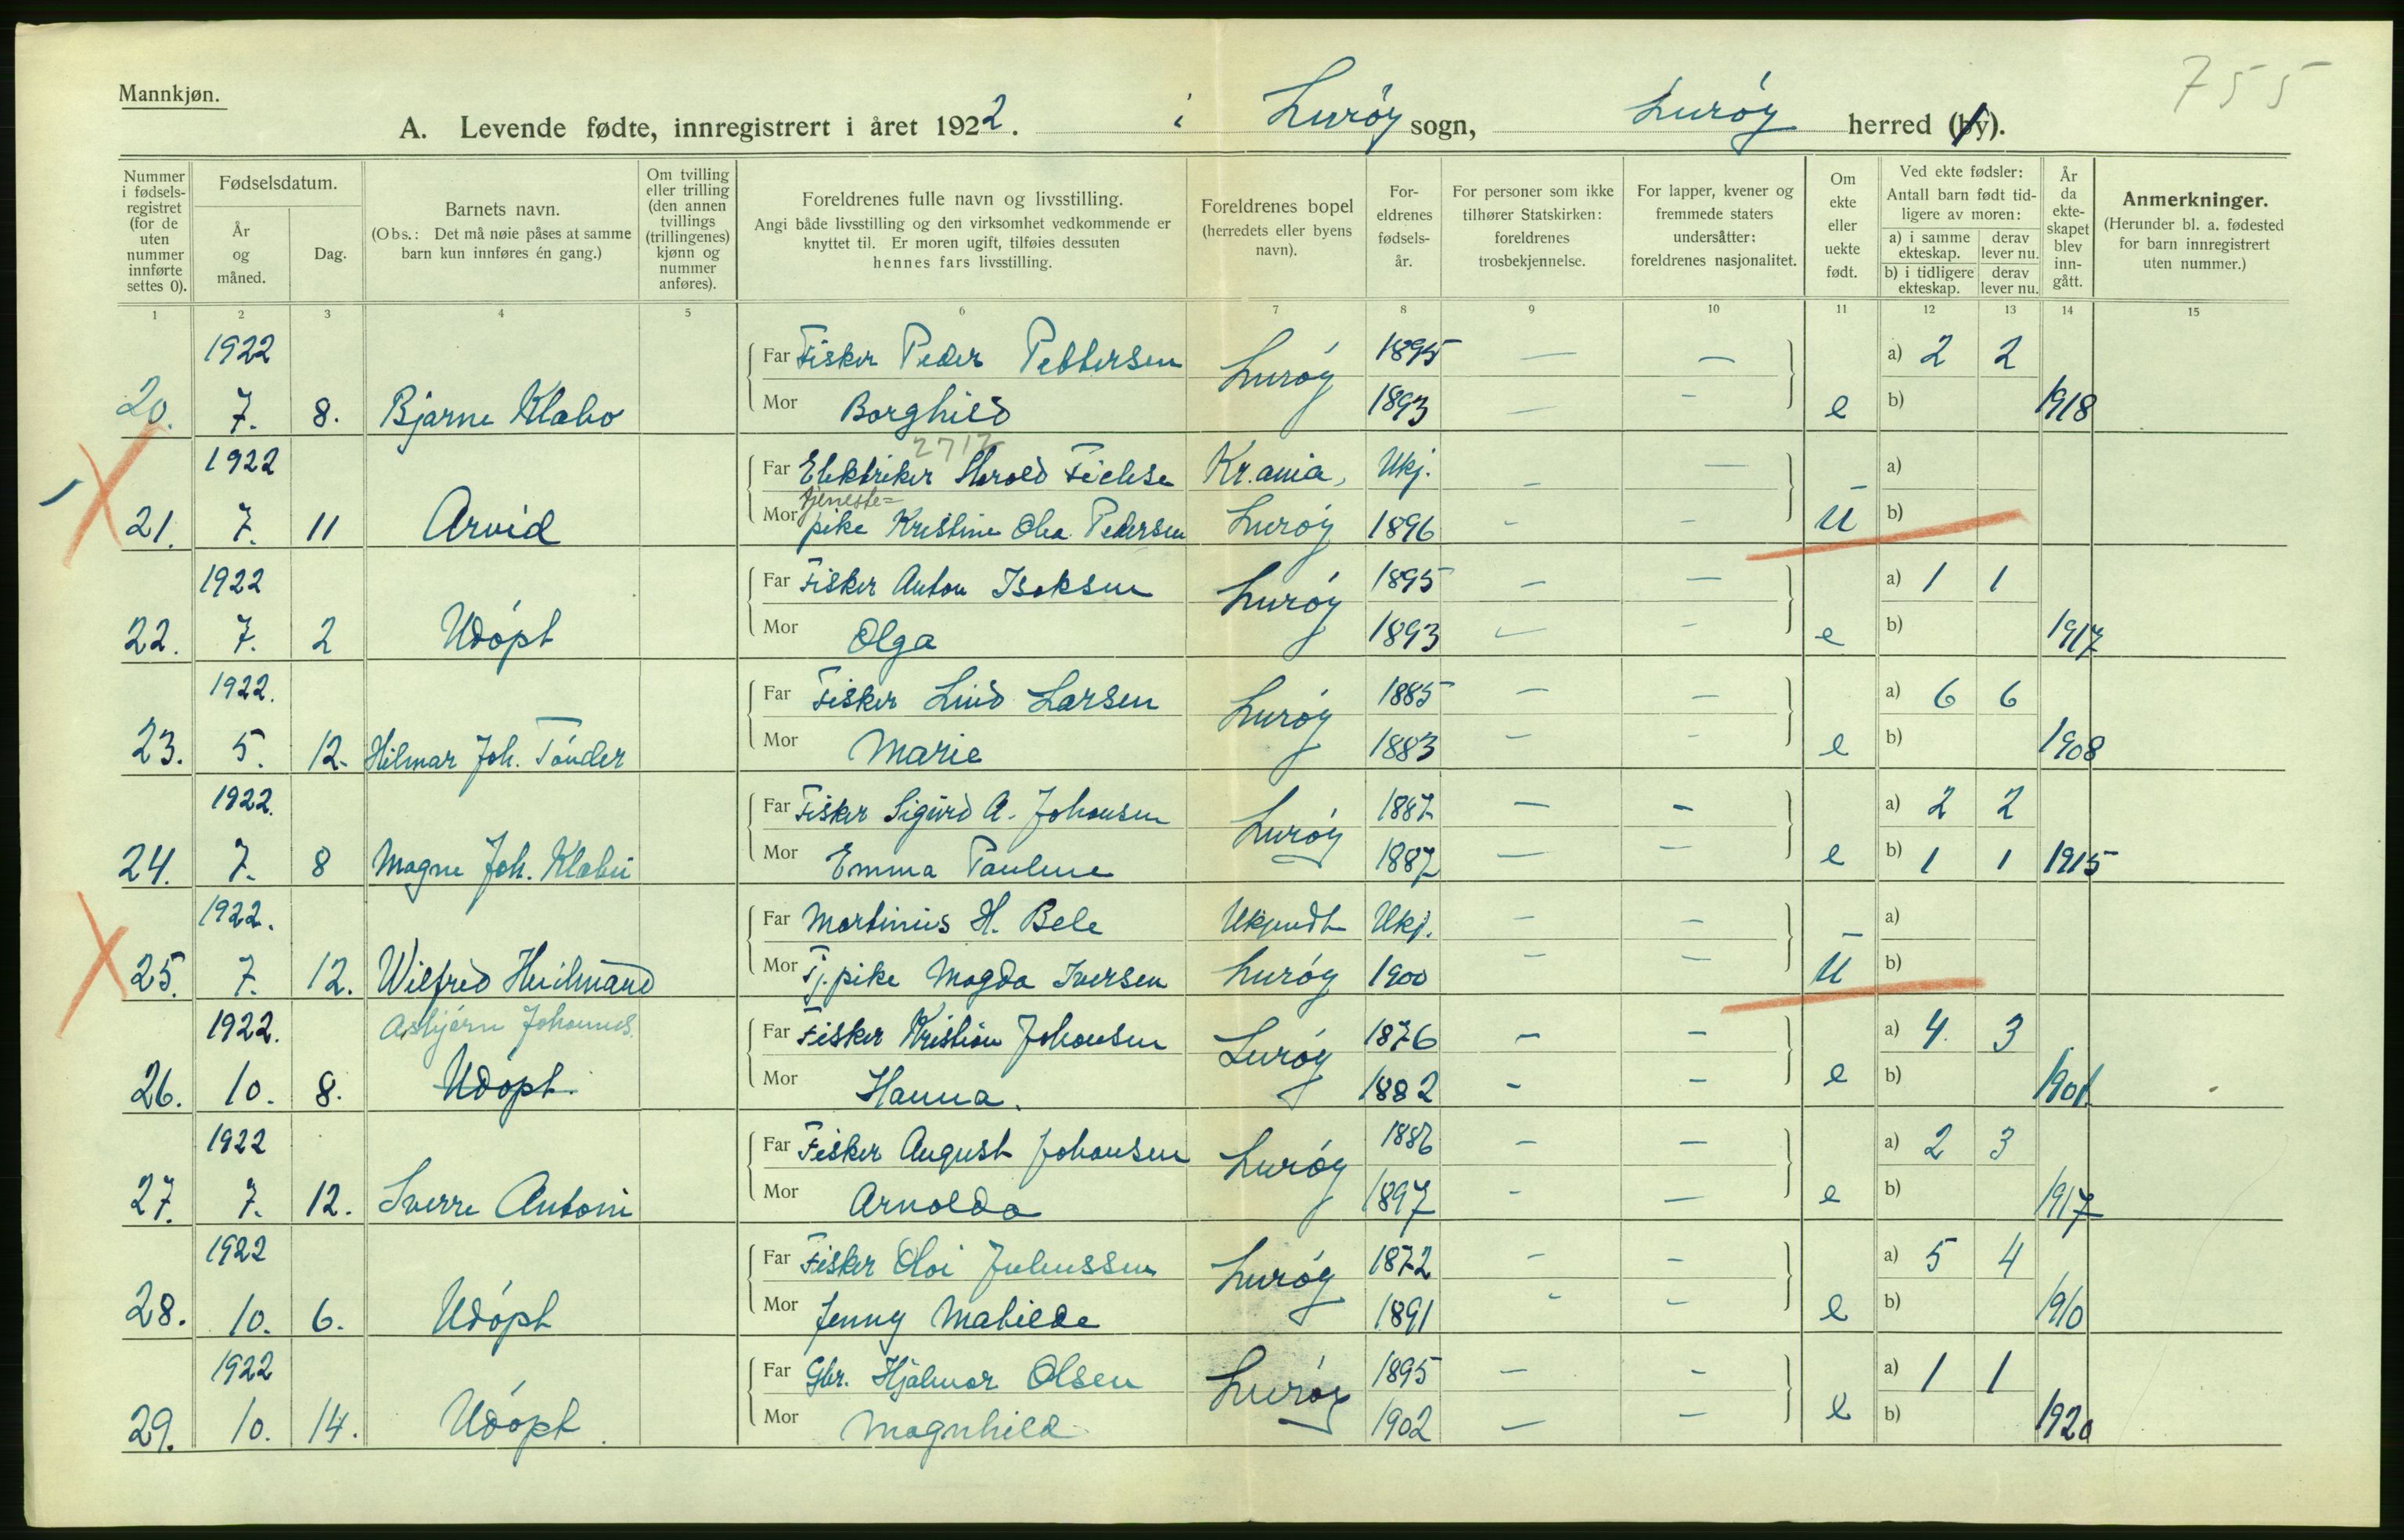 755
Mannkjøn.
A. Levende fødte, innregistrert i året 1922. i Lurøy sogn, Lurøy herred (by).
Nummer i fødsels-registret (for de uten nummer innførte settes 0).
Fødselsdatum.
År og måned.
Dag.
Barnets navn.
(Obs.: Det må nøie påses at samme barn kun innføres én gang.)
Om tvilling eller trilling (den annen tvillings (trillingenes) kjønn og nummer anføres).
Foreldrenes fulle navn og livsstilling.
Angi både livsstilling og den virksomhet vedkommende er knyttet til. Er moren ugift, tilføies dessuten hennes fars livsstilling.
Foreldrenes bopel (herredets eller byens navn).
For-eldrenes fødsels-år.
For personer som ikke tilhører Statskirken: foreldrenes trosbekjennelse.
For lapper, kvener og fremmede staters undersåtter: foreldrenes nasjonalitet.
Om ekte eller uekte født.
Ved ekte fødsler: Antall barn født tid-ligere av moren:
a) i samme ekteskap. derav lever nu.
b) i tidligere ekteskap. derav lever nu.
År da ekte-skapet blev inn-gått.
Anmerkninger.
(Herunder bl. a. fødested for barn innregistrert uten nummer.)
1 2 3 4 5 6 7 8 9 10 11 12 13 14 15
1922 Far Fisker Peder Pettersen Lurøy 1895 — — a) 2 2
20. 7. 8. Bjarne Klabo Mor Borghild 1893 — - e b) 1918
2712
1922 Far Elektriker Harold Kr.ania, Ukj. - — a)
tjeneste=
21. 7. 11 Arvid Mor pike Kristine Olea Pedersen Lurøy 1896 - - U b)
1922 Far Fisker Anton Isaksen Lurøy 1895 — — a) 1 1
22. 7. 2 Udöpt Mor Olga 1893 - e b) 1917
1922. Far Fisker Lind Larsen Lurøy 1885 — — a) 6 6
23. 5. 12. Hilmar Joh. Tönder Mor Marie 1883 - - e b) 1908
1922. Far Fisker Sigurd A. Johansen Lurøy 1887 — - a) 2 2
24. 7. 8 Magne Joh. Klabu Mor Emma Pauline 1887 — — e b) 1 1 1915
1922. Far Martinius H. Bele Ukjendt Ukj. - - a)
25. 7. 12. Wilfred Mor Tj.pike Magda Iversen Lurøy 1900 - - U b)
1922. Asbjörn Johannes. Far Fisker Kristian Johansen Lurøy 1876 - - a) 4. 3
26. 10. 8. Udöpt. Mor Hanna. 1882 - - e b) 1901.
1922 Far Fisker August Johansen Lurøy 1886 - — a) 2 3
27. 7. 12. Sverre Antoni Mor Arnolda 1897 - — e b) 1917
1922 Far Fisker Juliussen Lurøy 1872 - - a) 5 4
28. 10. 6. Udöpt Mor Jenny Matilde 1891 - - e b) 1910
1922 Far Gbr. Hjalmar Olsen Lurøy 1895 — - a) 1 1
29. 10. 14. Udöpt. Mor Magnhild 1902 — — e b) 1920